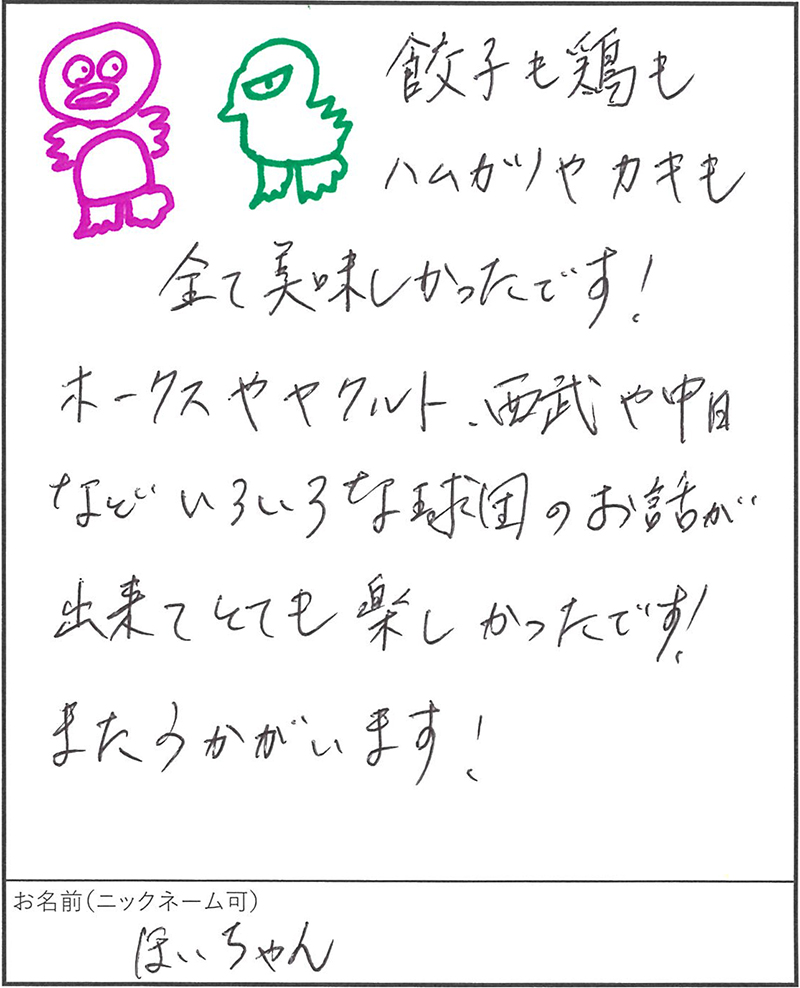 餃子も鶏も
ハムガツやカキも
全て美味しかったです!
ホークスやヤクルト、西武や中日
などいろいろな球団のお話が
出来てとても楽しかったです!
またうかがいます!
お名前(ニックネーム可)
ほいちゃん